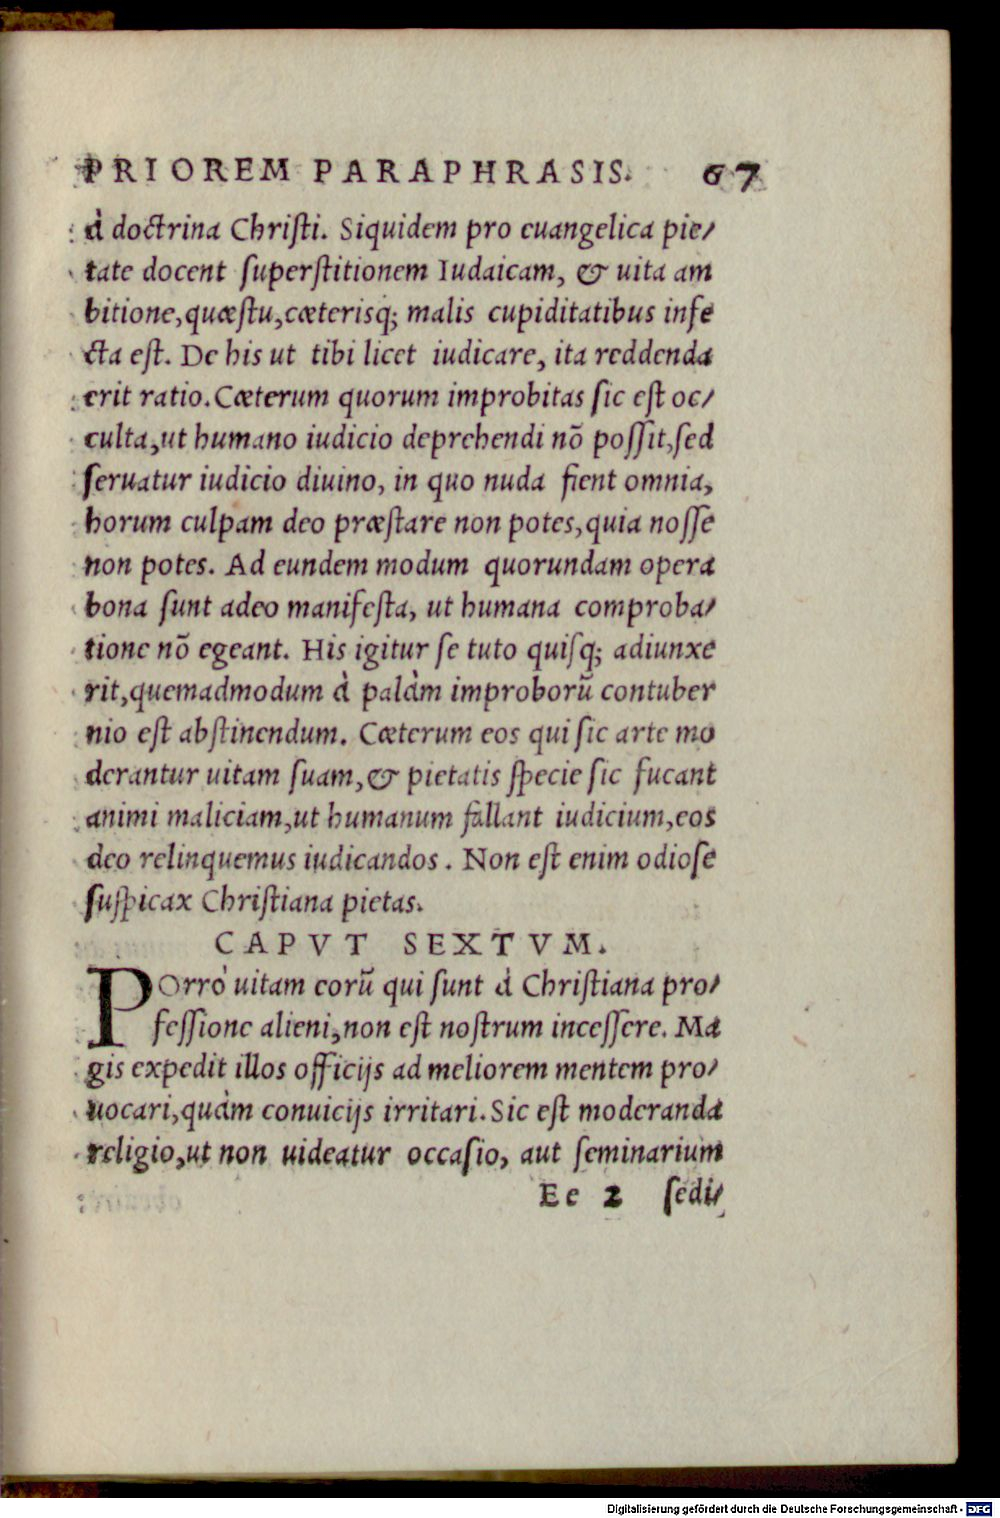 PRIOREM PARAPHRASIS. 67
à doctrina Christi. Siquidem pro euangelica pie/
tate docent superstitionem Iudaicam, & uita am
bitione, quæstu, cæterisq; malis cupiditatibus infe
cta est. De his ut tibi licet iudicare, ita reddenda
erit ratio. Cæterum quorum improbitas sic est oc/
culta, ut humano iudicio deprehendi nõ possit, sed
seruatur iudicio diuino, in quo nuda fient omnia,
horum culpam deo præstare non potes, quia nosse
non potes. Ad eundem modum quorundam opera
bona sunt adeo manifesta, ut humana comproba/
tione nõ egeant. His igitur se tuto quisq; adiunxe
rit, quemadmodum à palàm improborũ contuber
nio est abstinendum. Cæterum eos qui sic arte mo
derantur uitam suam, & pietatis specie sic fucant
animi maliciam, ut humanum fallant iudicium, eos
deo relinquemus iudicandos. Non est enim odiose
suspicax Christiana pietas.
CAPVT SEXTVM.
POrrò uitam eorũ qui sunt à Christiana pro/
fessione alieni, non est nostrum incessere. Ma
gis expedit illos officijs ad meliorem mentem pro/
uocari, quàm conuicijs irritari. Sic est moderanda
religio, ut non uideatur occasio, aut seminarium
Ee 2 sedi/
Digitalisierung gefördert durch die Deutsche Forschungsgemeinschaft - DFG